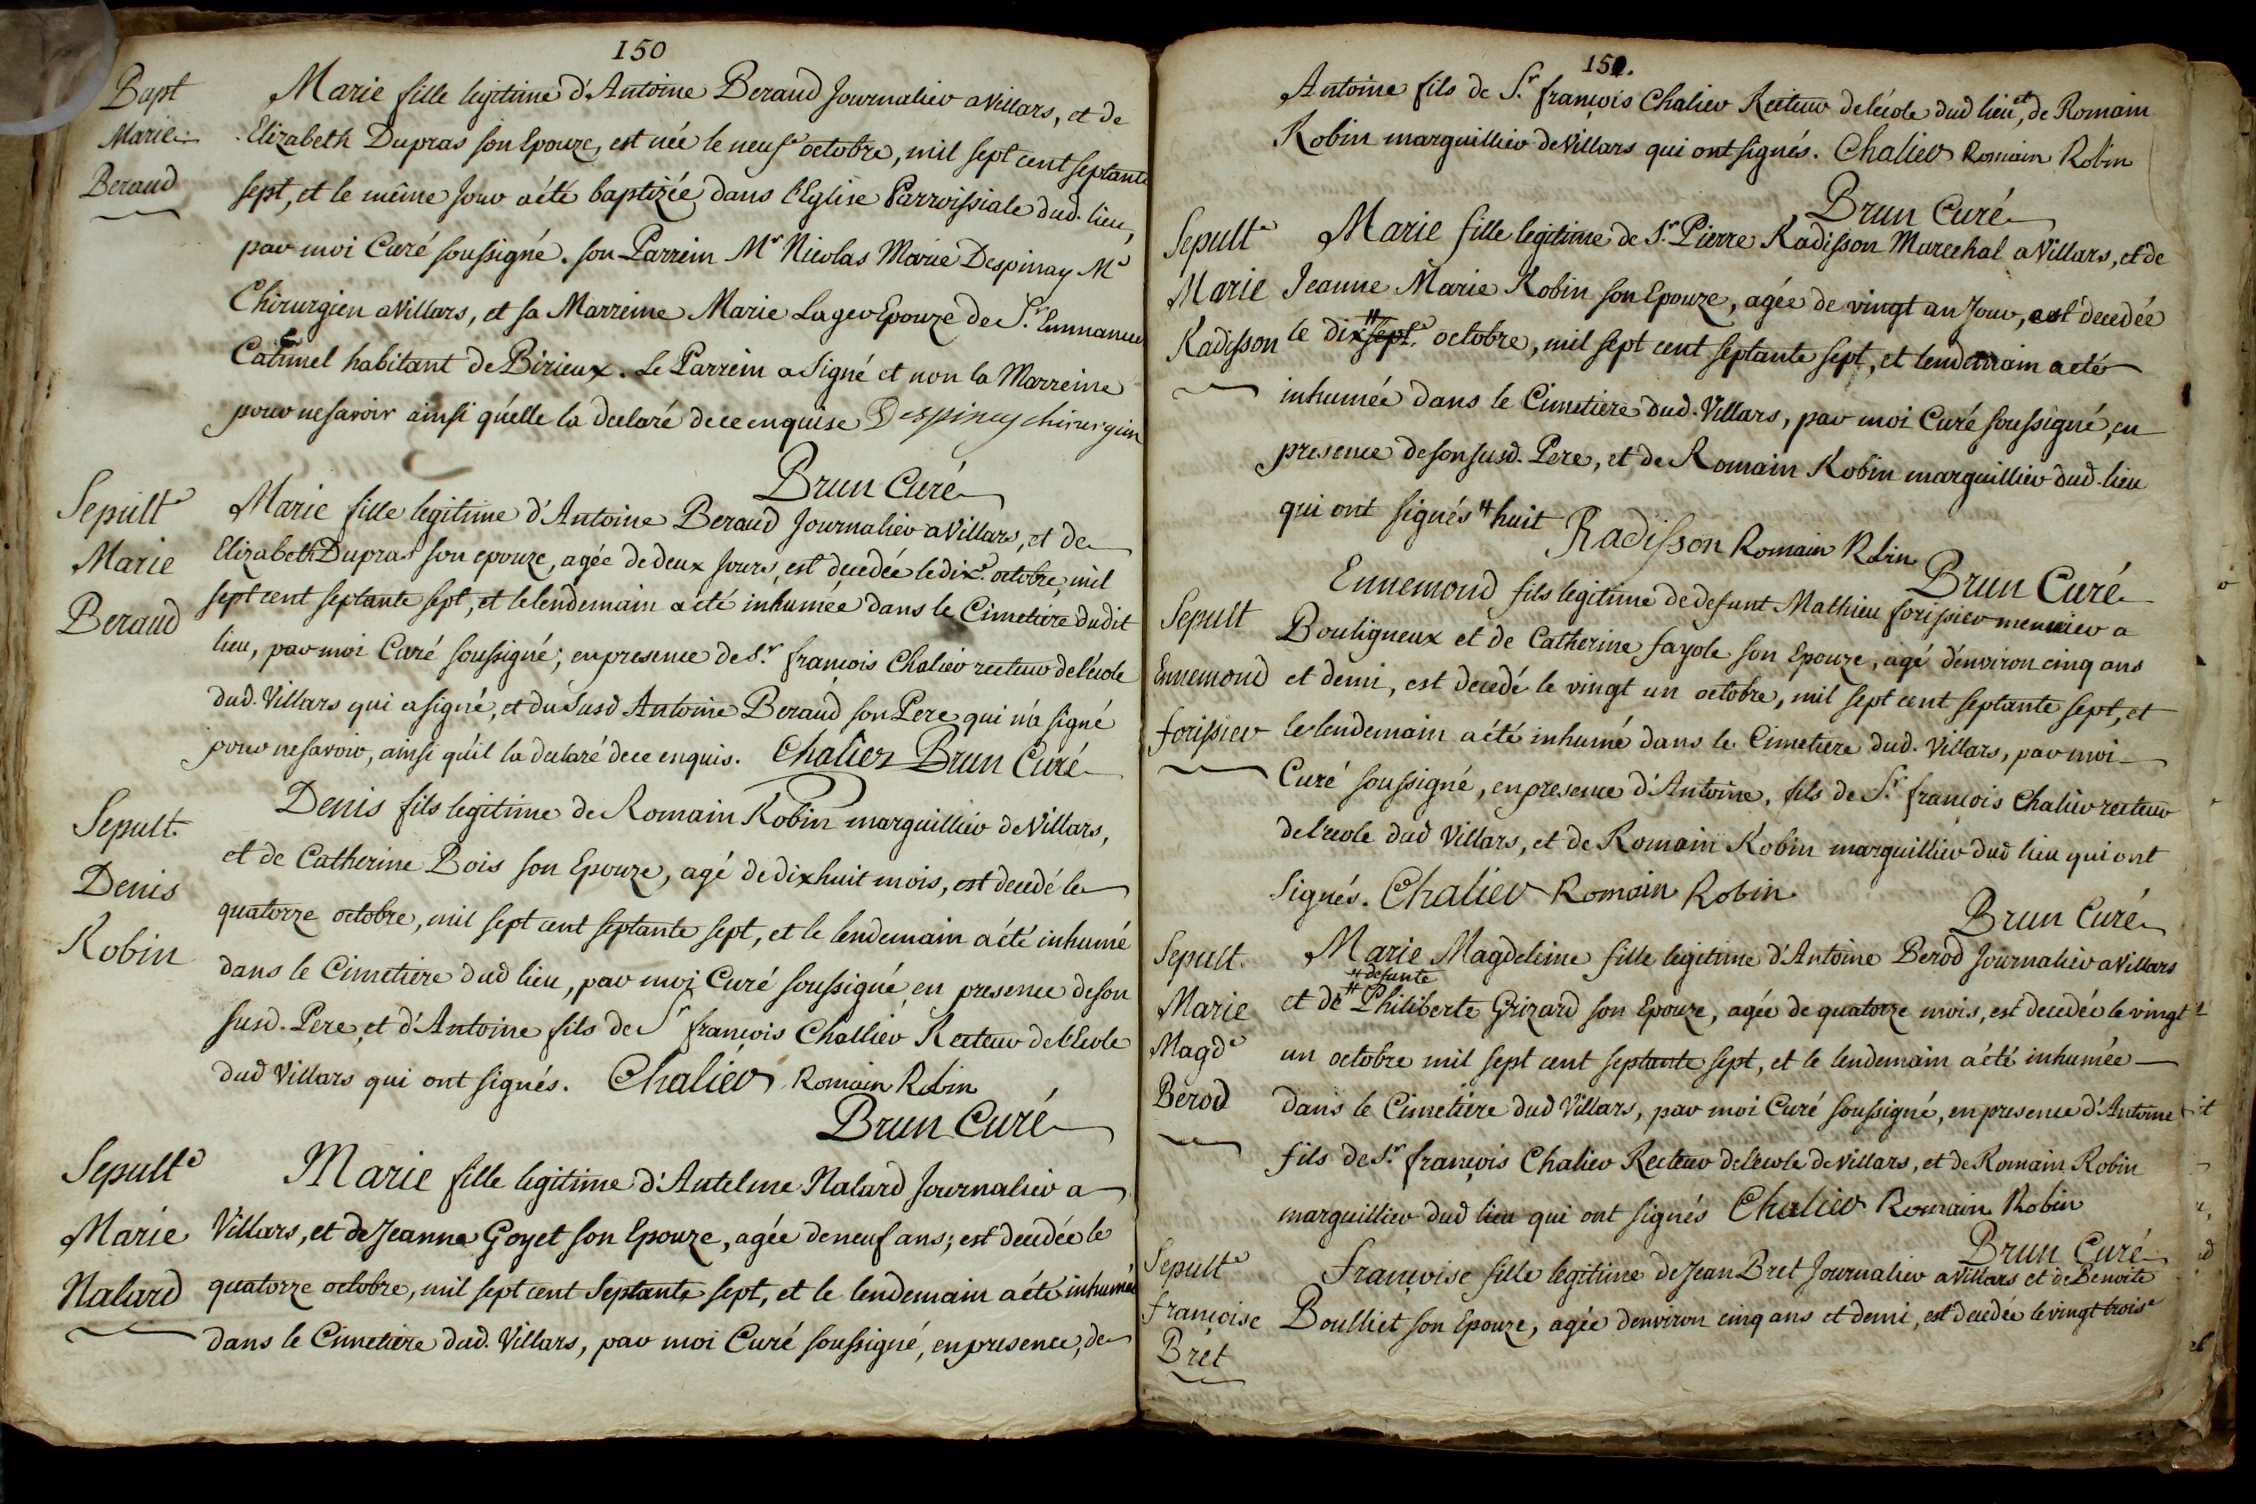 150
Bapt
Marie
Beraud
Marie fille legitime d'Antoine Beraud Journalier a Villars, et de
Elizabeth Dupras son Epouze, est née le neufe octobre, mil sept cent septante
sept, et le même jour a été baptizée dans l'Eglise Parroissiale dud. lieu,
par moi Curé soussigné. son Parrein Mr Nicolas Marie Despinay Me
Chirurgien a Villars, et sa Marreine Marie Lager Epouze de Sr. Emmanuel
habitant de Birieux. Le Parrein a Signé et non la Marreine
pour ne savoir ainsi qu'elle la declaré de ce enquise Despinay chirurgien
Brun Curé
Sepulte
Marie
Beraud
Marie fille legitime d'Antoine Beraud Journalier a Villars, et de
Elizabeth Dupras son epouze, agée de deux jours, est decedée le dixe. octobre, mil
sept cent septante sept, et le lendemain a été inhumée dans le Cimetiere dudit
lieu, par moi Curé soussigné; en presence de Sr. françois Chalier recteur de l'ecole
dud. Villars qui a signé, et du susd Antoine Beraud son Pere qui n'a signé
pour ne savoir, ainsi qu'il la declaré de ce enquis. Chalier Brun Curé
Sepult.
Denis
Robin
Denis fils legitime de Romain Robin marguillier de Villars,
et de Catherine Bois son Epouze, agé de dixhuit mois, est decedé le
quatorze octobre, mil sept cent septante sept, et le lendemain a été inhumé
dans le Cimetiere dud lieu, par moi Curé soussigné, en presence de son
susd. Pere, et d'Antoine fils de Sr françois Challier Recteur de l'Ecole
dud Villars qui ont signés. Chalier Romain Robin
Brun Curé
Sepulte
Marie
Nalard
Marie fille legitime d'Antelme Nalard Journalier a
Villars, et de Jeanne Goyet son Epouze, agée de neuf ans, est decedée le
quatorze octobre, mil sept cent Septante sept, et le lendemain a été inhumée
dans le Cimetiere dud. Villars, par moi Curé soussigné, en presence, de
151.
Antoine fils de Sr. françois Chalier Recteur de l'école dud lieu, et de Romain
Robin marguillier de Villars qui ont signés. Chalier Romain Robin
Brun Curé
Sepulte
Marie
Radisson
Marie fille legitime de Sr. Pierre Radisson Marechal a Villars, et de
Jeanne Marie Robin son Epouze, agée de vingt un jour, est decedée
le dix # sept. octobre, mil sept cent septante sept, et lendemain a été
inhumée dans le Cimetiere dud. Villars, par moi Curé soussigné, en
presence de son susd. Pere, et de Romain Robin marguillier dud. lieu
qui ont signés # huit Radisson Romain Robin
Brun Curé
Sepult
Ennemond
forissier
Ennemond fils legitime de defunt Mathieu forissier meunier a
Bouligneux et de Catherine fayole son Epouze, agé d'environ cinq ans
et demi, est decedé le vingt un octobre, mil sept cent septante sept, et
le lendemain a été inhumé dans le Cimetiere dud. Villars, par moi
Curé soussigné, en presence d'Antoine, fils de Sr. françois Chalier recteur
de l'ecole dud Villars, et de Romain Robin marguillier dud lieu qui ont
signés. Chalier Romain Robin
Brun Curé
Sepult.
Marie
Magde
Berod
Marie Magdeleine fille legitime d'Antoine Berod Journalier a Villars
# defunte
et de # Philiberte Grizard son Epouze, agée de quatorze mois, est decedée le vingt
un octobre mil sept cent septante sept, et le lendemain a été inhumée
dans le Cimetiere dud Villars, par moi Curé soussigné, en presence d'Antoine
fils de Sr. françois Chalier Recteur de l'ecole de Villars, et de Romain Robin
marguillier dud lieu qui ont signés Chalier Romain Robin
Brun Curé
Sepulte
françoise
Bret
françoise fille legitime de Jean Bret Journalier a Villars et de Benoite
Boulliet son Epouze, agée d'environ cinq ans et demi, est decedée le vingt troise